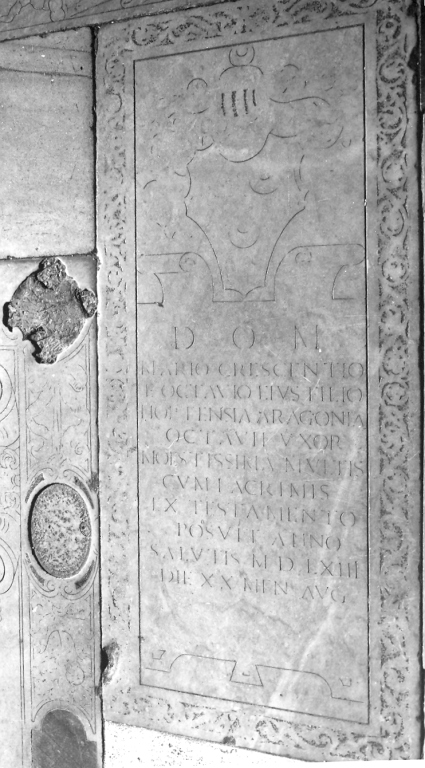 D O M
MARIO CRESCENTIO
E OCTAVIO EIVS FILIO
HORTENSIA ARAGONIA
OCTAVII VXOR
MOESTISSIMA MVLTIS
CVM LACRIMIS
EX TESTAMENTO
POSVIT ANNO
SALVTIS M D LXIIII
DIE XX MEN AVG